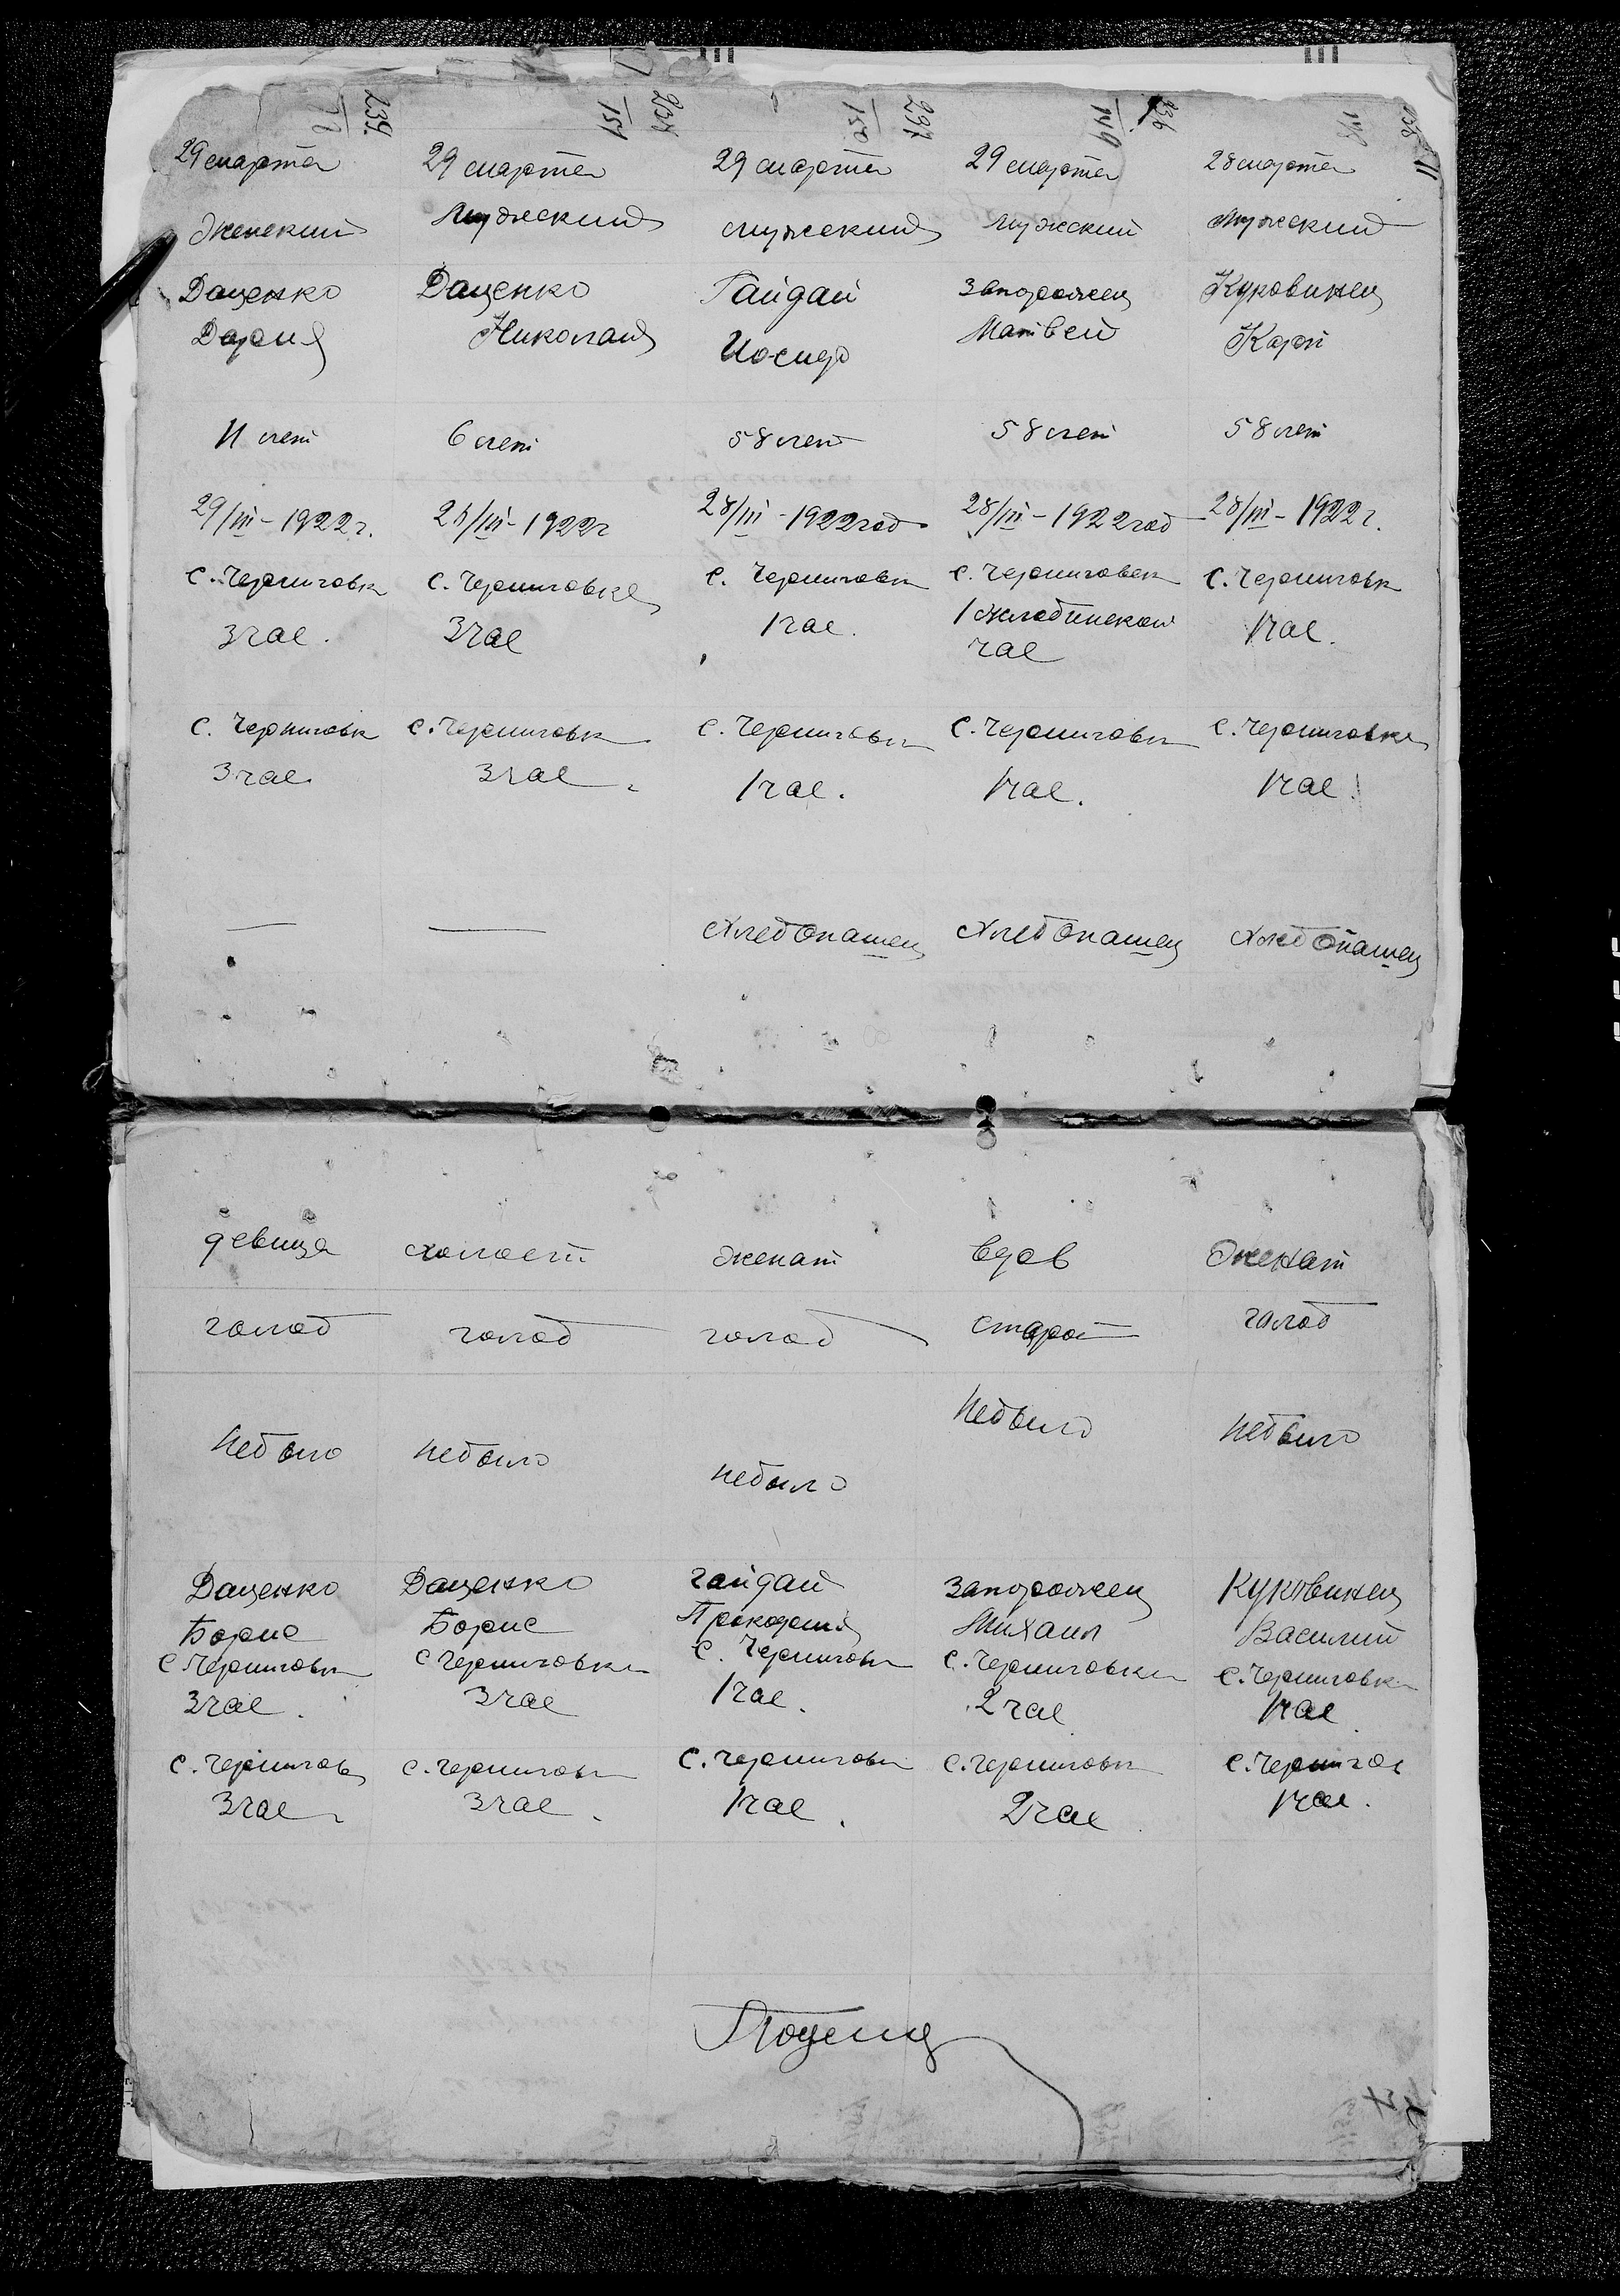 239 151 297 251 149
29 марта 29 марта 29 марта 29 марта 28 марта
Женский Мужский мужский Мужский Мужский
Даценко Даценко Гайдай Запорожец Куковинец
Дария Николай Иосиф Матвей Карп
11 лет 6 лет 58 лет 58 лет 58 лет
29/III-1922г. 28/III-1922г 28/III-1922год 28/III-1922год 28/III-1922г.
с. Черниговк с. Черниговка с. Черниговк с. Черниговк с. Черниговк
3 час. 3 час 1 час. 1 1 час.
час
с. Черниговк с. Черниговк с. Черниговк с. Черниговк с. Черниговка
3 час. 3 час. 1 час. 1 час. 1 час.
— — Хлебопашец Хлебопашец Хлебопашец
девица холост женат вдов Женат
голод голод голод старост голод
Небыло Небыло небыло Небыло Небыло
Даценко Даценко гайдай Запорожец Куковинец
Борис Борис Прокофий Михаил Василий
с Черниговк с Черниговка с. Черниговк с. Черниговка с. Черниговка
3 час. 3 час 1 час. 2 час 1 час
с. Чернигов с. Черниговк с. Черниговк с. Черниговк с. Чернигов
3 час 3 час. 1 час. 2 час 1 час.